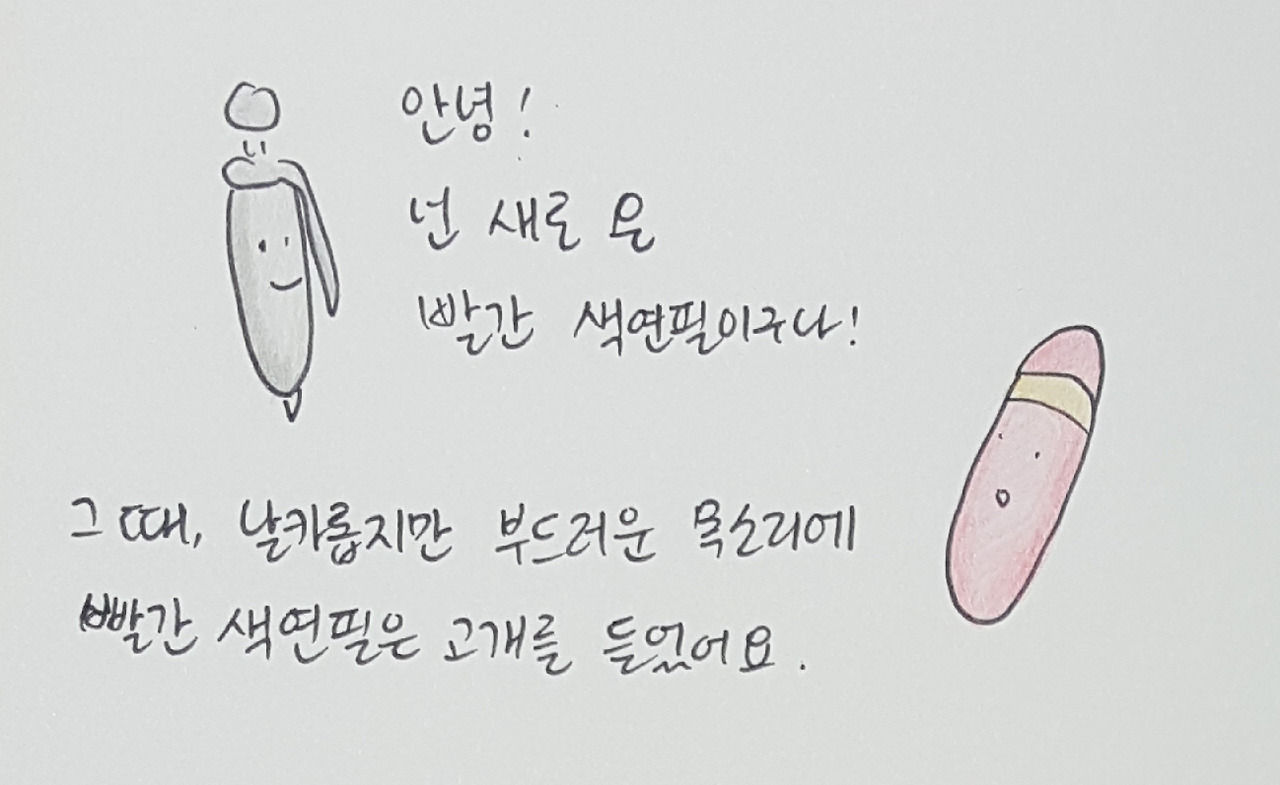 안녕!
넌 새로 온
빨간 색연필이구나!
그때, 날카롭지만 부드러운 목소리에
빨간 색연필은 고개를 들었어요.